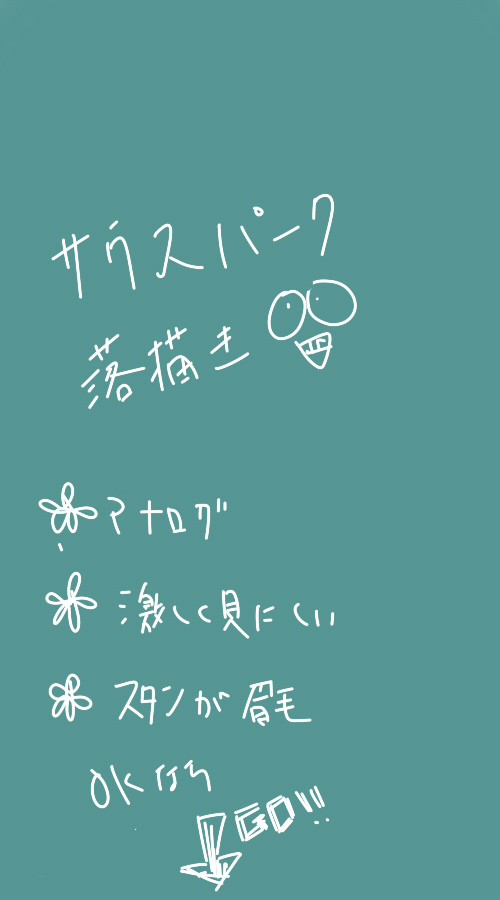 サウスパーク
落描き
アナログ
激しく見にくい
スタンが眉毛
OKなら
GO!!